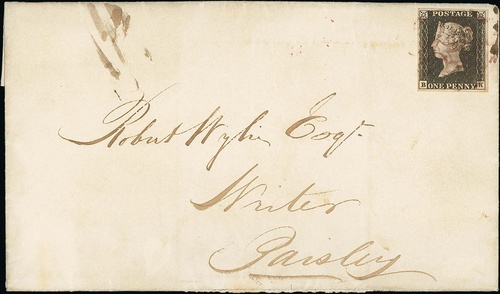 POSTAGE
ONE PENNY
Robert Wylie Esqr.
Writer
Paisley